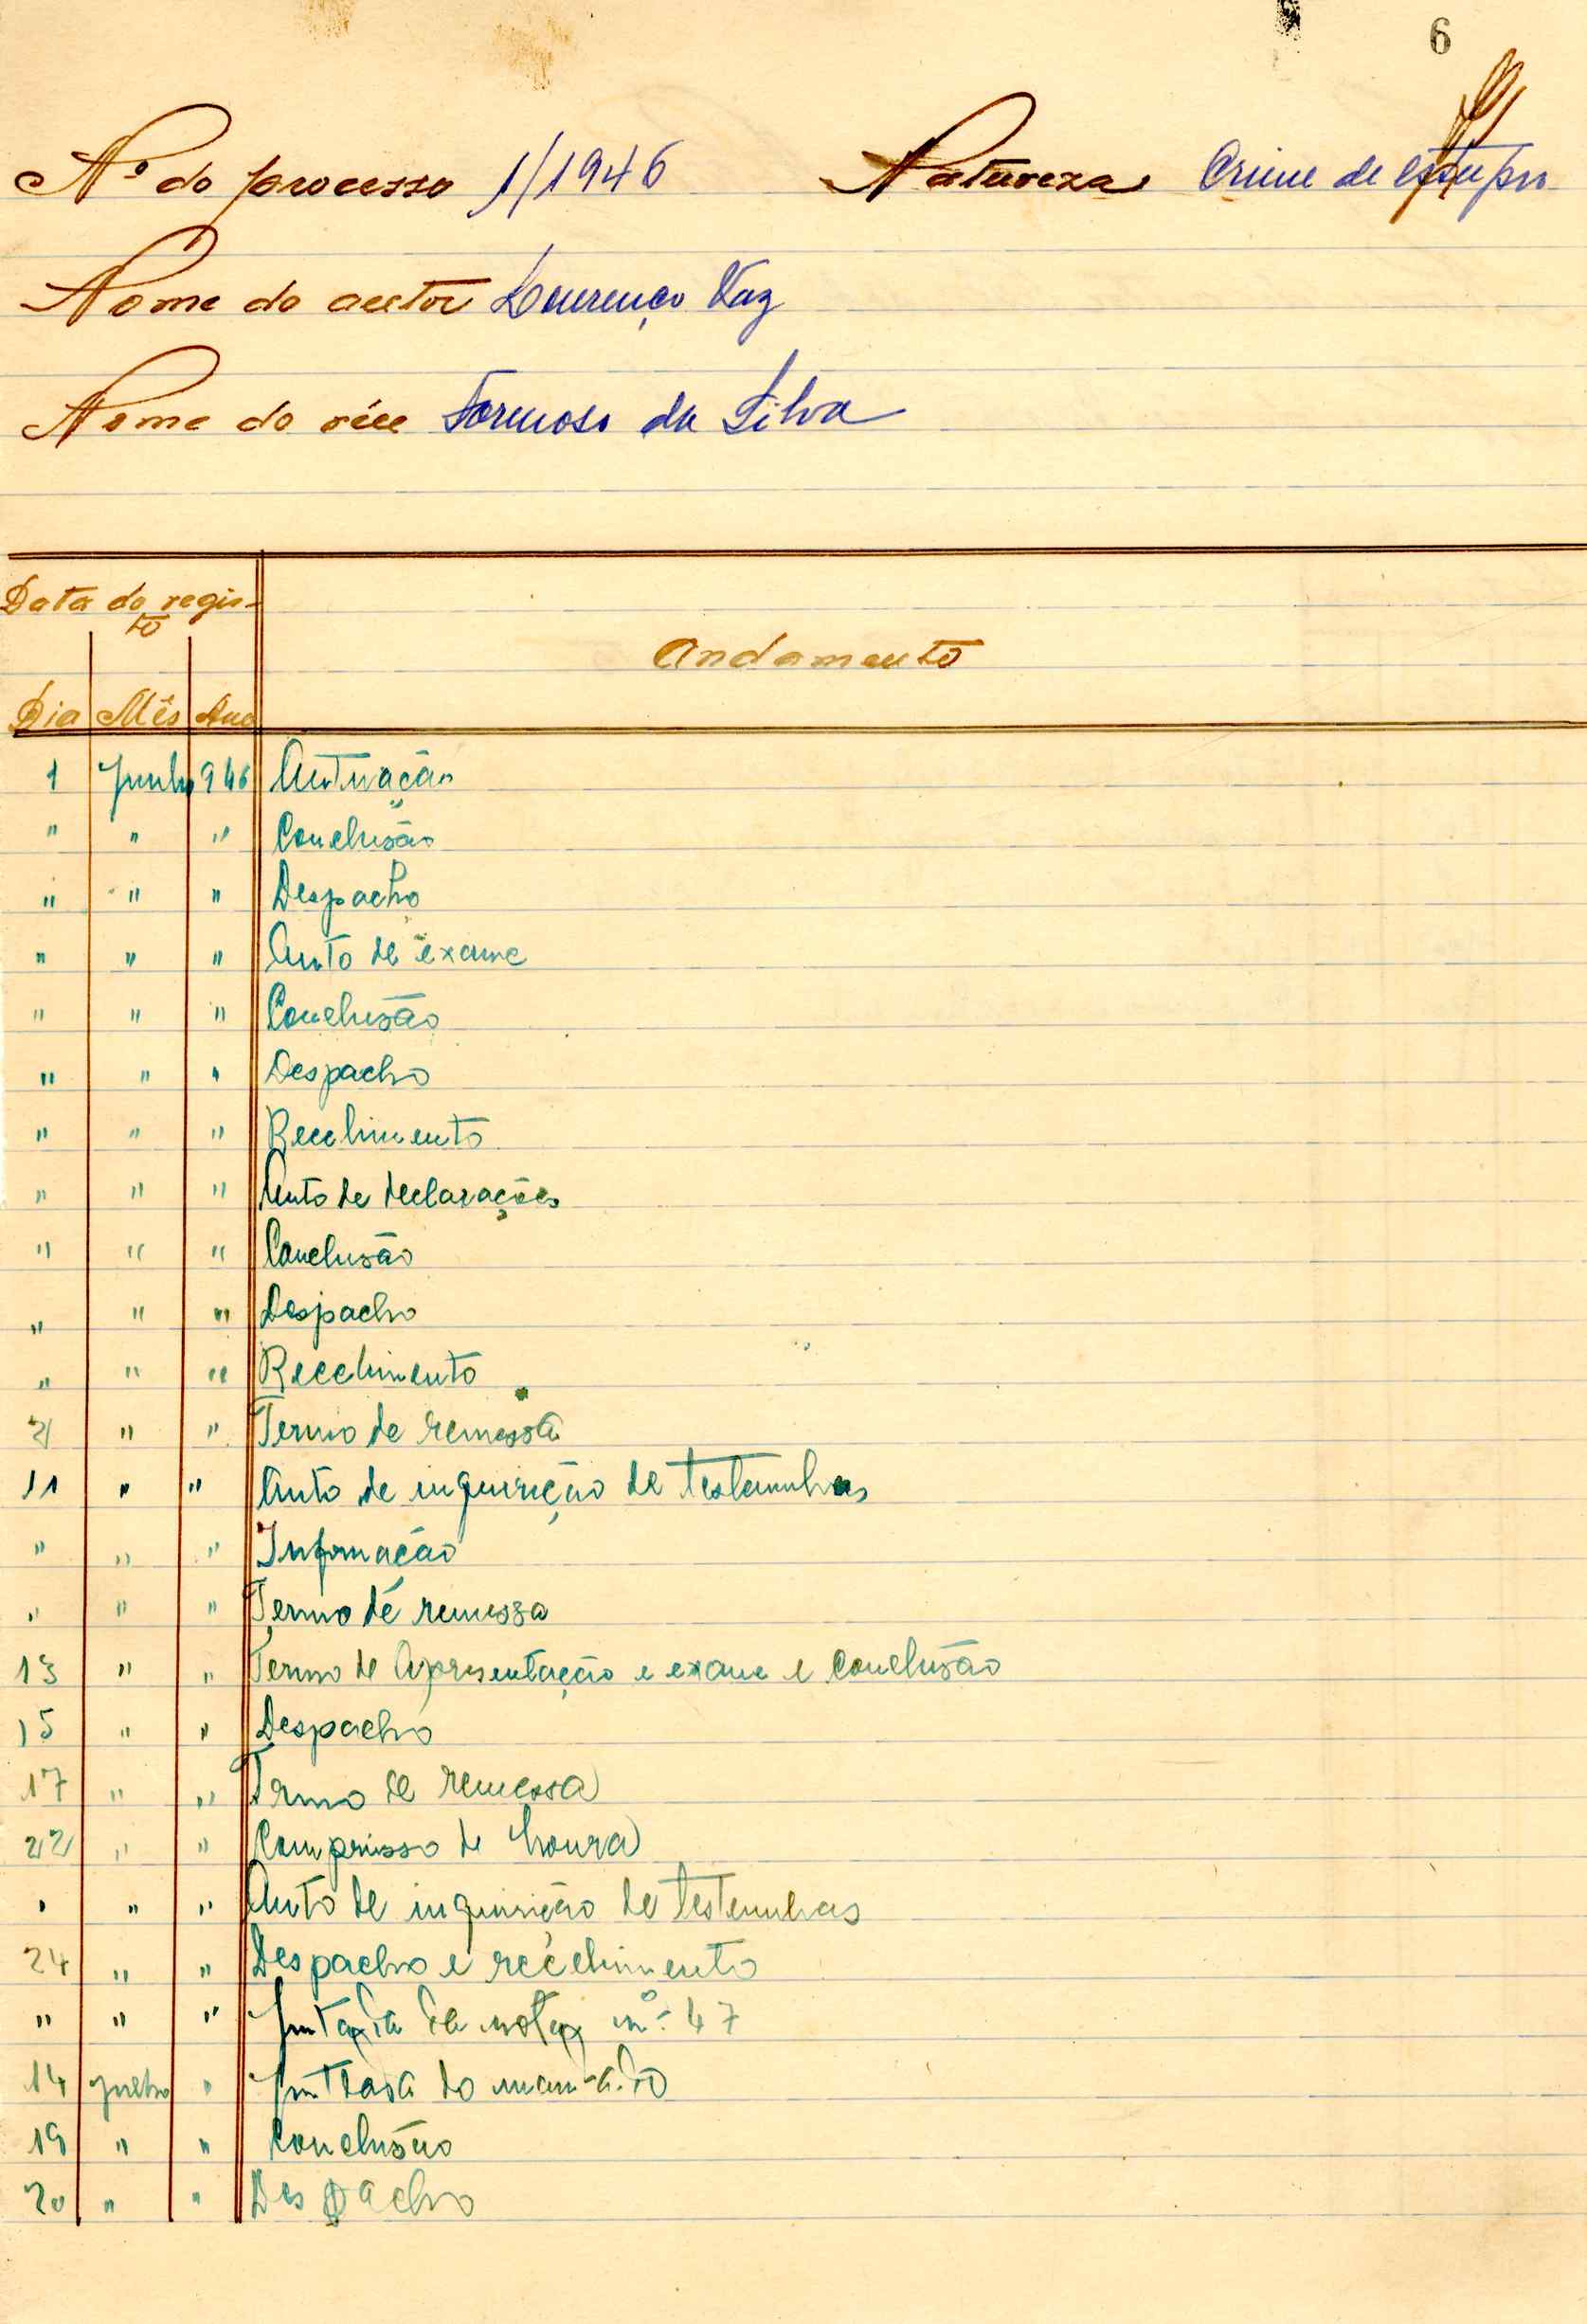 6
Nº do processo 1/1946 Natureza Crime de estupro
Nome do autor Lourenço Vaz
Nome do réu Formoso da Silva
Data do regis-
to
Andamento
Dia Mês Ano
1 Junho 946 Autuação
" " " Conclusão
" " " Despacho
" " " Auto de exame
" " " Conclusão
" " " Despacho
" " " Recebimento
" " " Auto de declarações
" " " Conclusão
" " " Despacho
" " " Recebimento
2 " " Termo de remessa
11 " " Auto de inquirição de testemunhas
" " " Informação
" " " Termo de remessa
13 " " Termo de Apresentação e exame e conclusão
15 " " Despacho
17 " " Termo de remessa
22 " " Comprisso de honra
" " " Auto de inquirição de testemunhas
24 " " Despacho e recebimento
" " " Juntada da nota nº 47
14 Julho " Juntada do mandado
19 " " Conclusão
20 " " Despacho